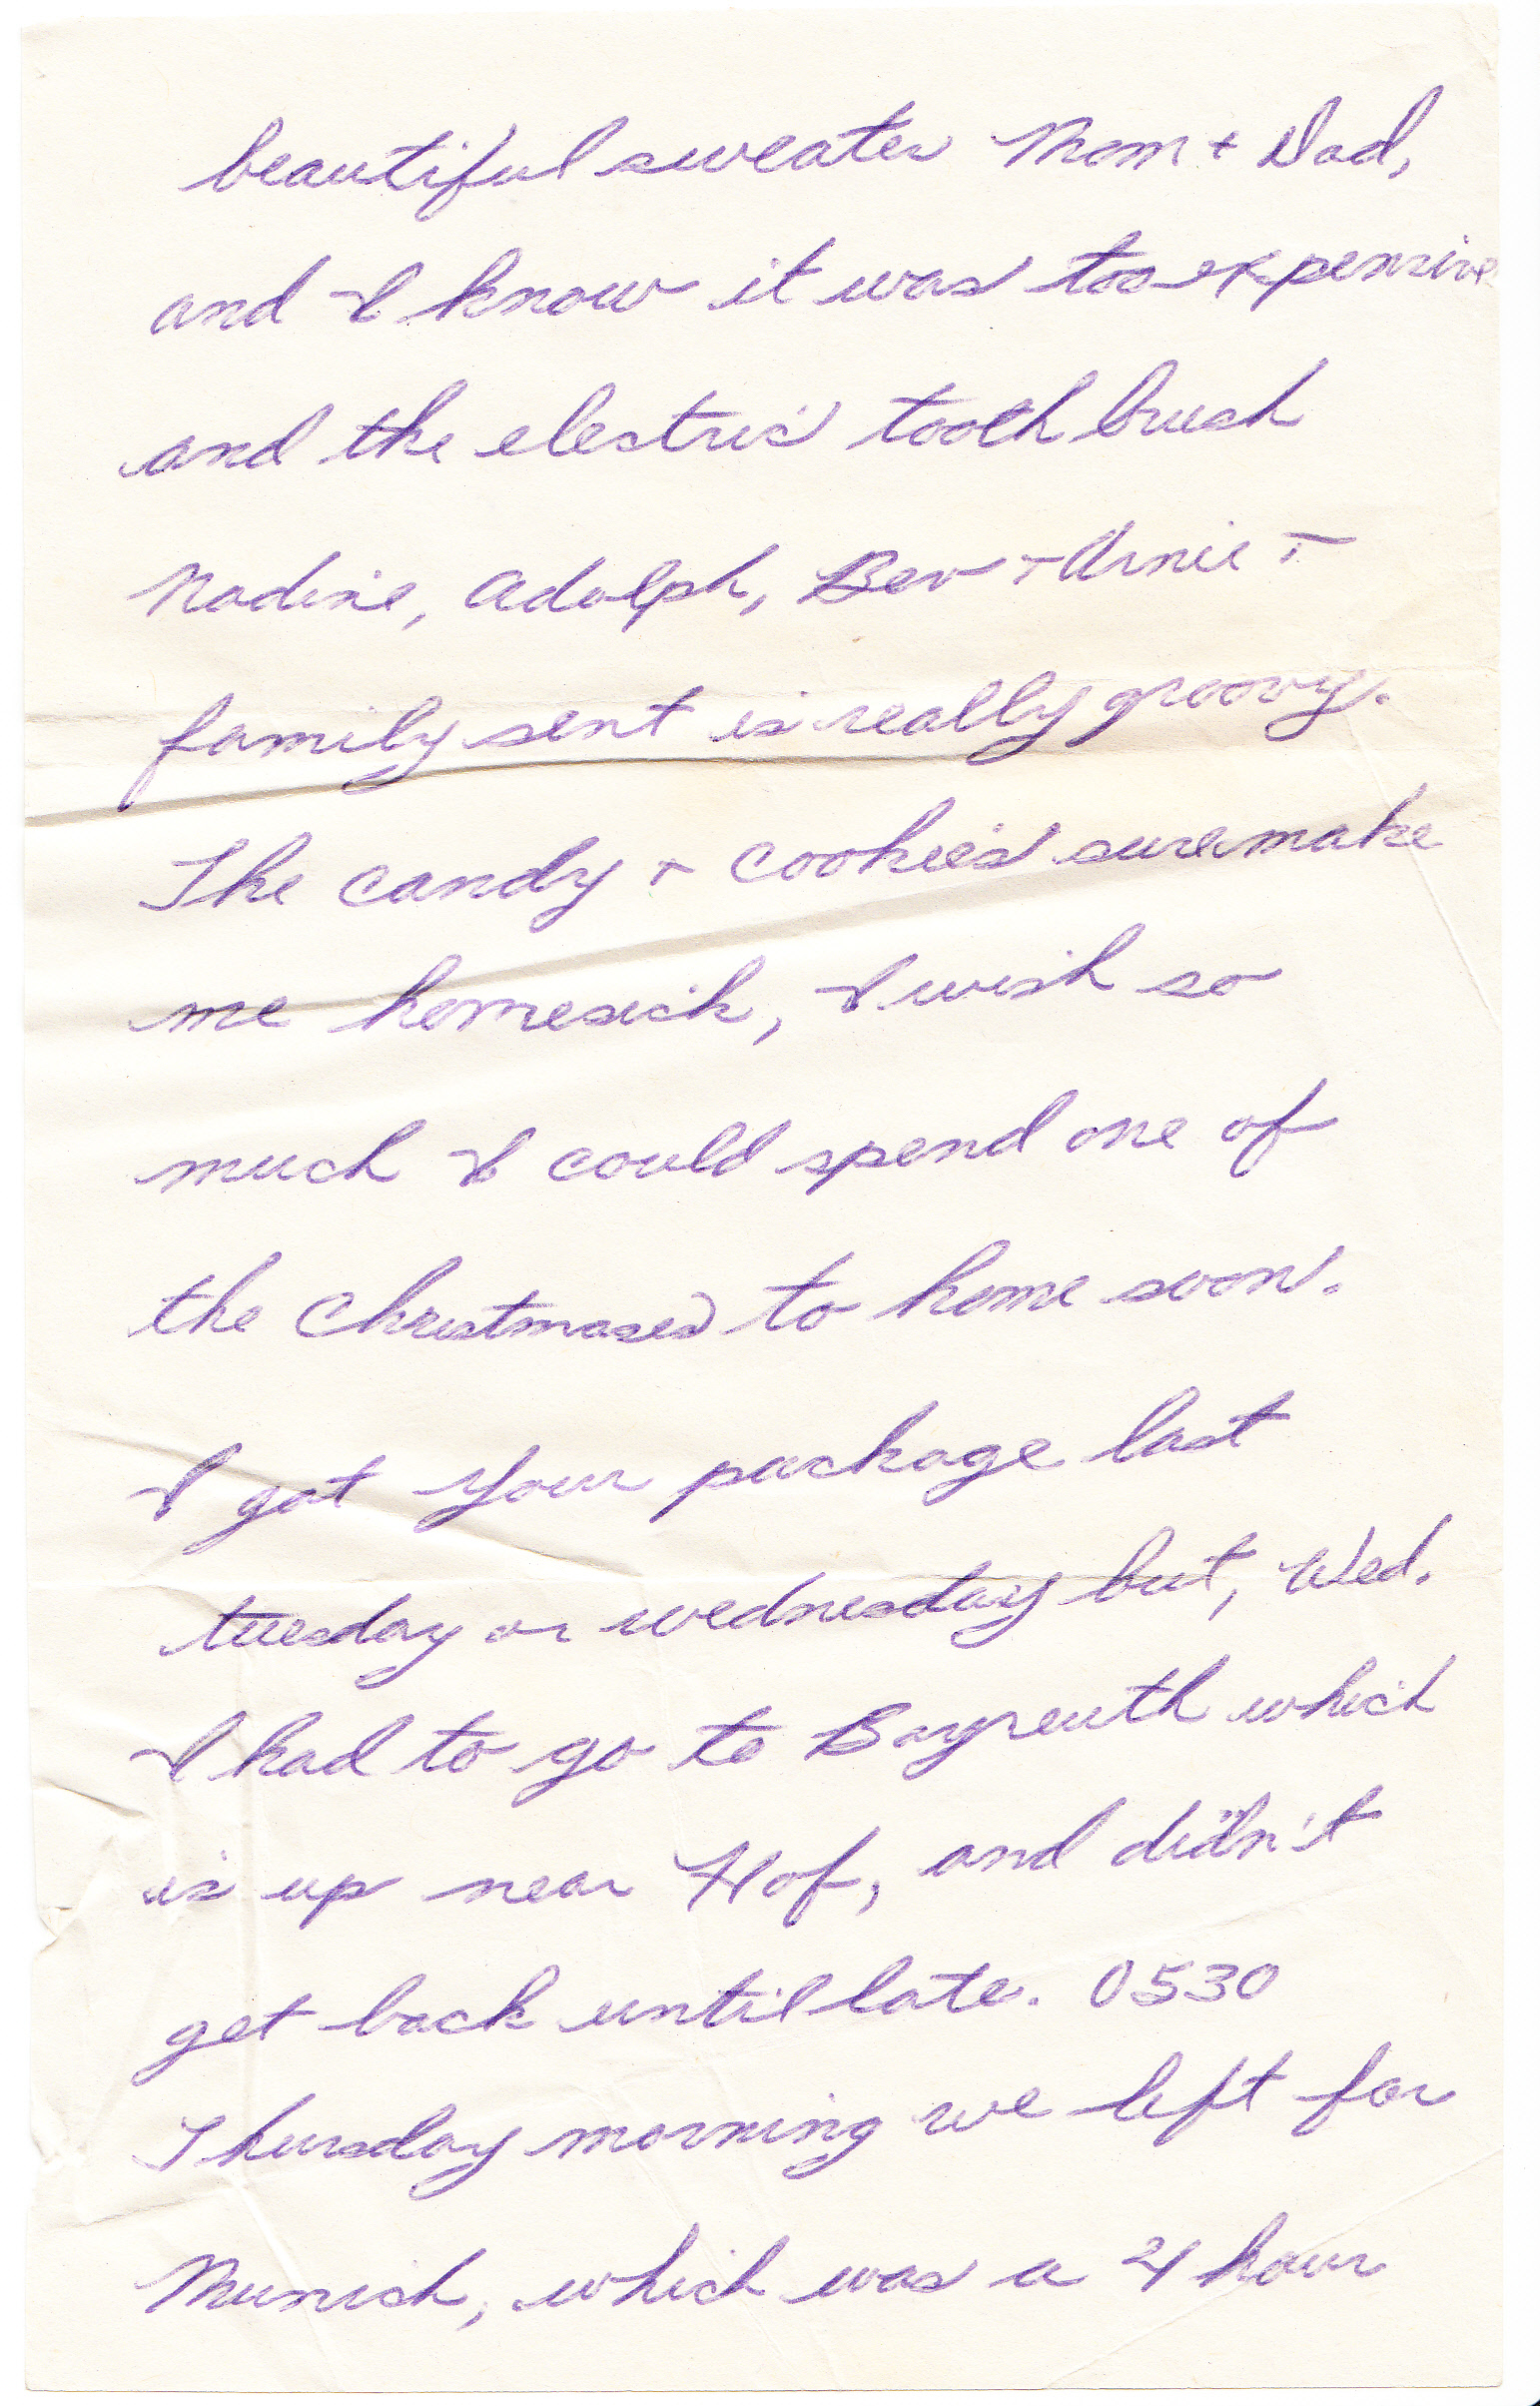 beautiful sweater Mom + Dad,
and I know it was too expensive
and the electric tooth brush
Nadine, Adolph, Bev + Arnie +
family sent is really groovy.
The candy + cookies sure make
me homesick, I wish so
much I could spend one of
the Christmases to home soon.
I got your package last
tuesday or wednesday but, Wed.
I had to go to Bayreuth which
is up near Hof, and didn't
get back until late. 0530
Thursday morning we left for
Munich, which was a 4 hour